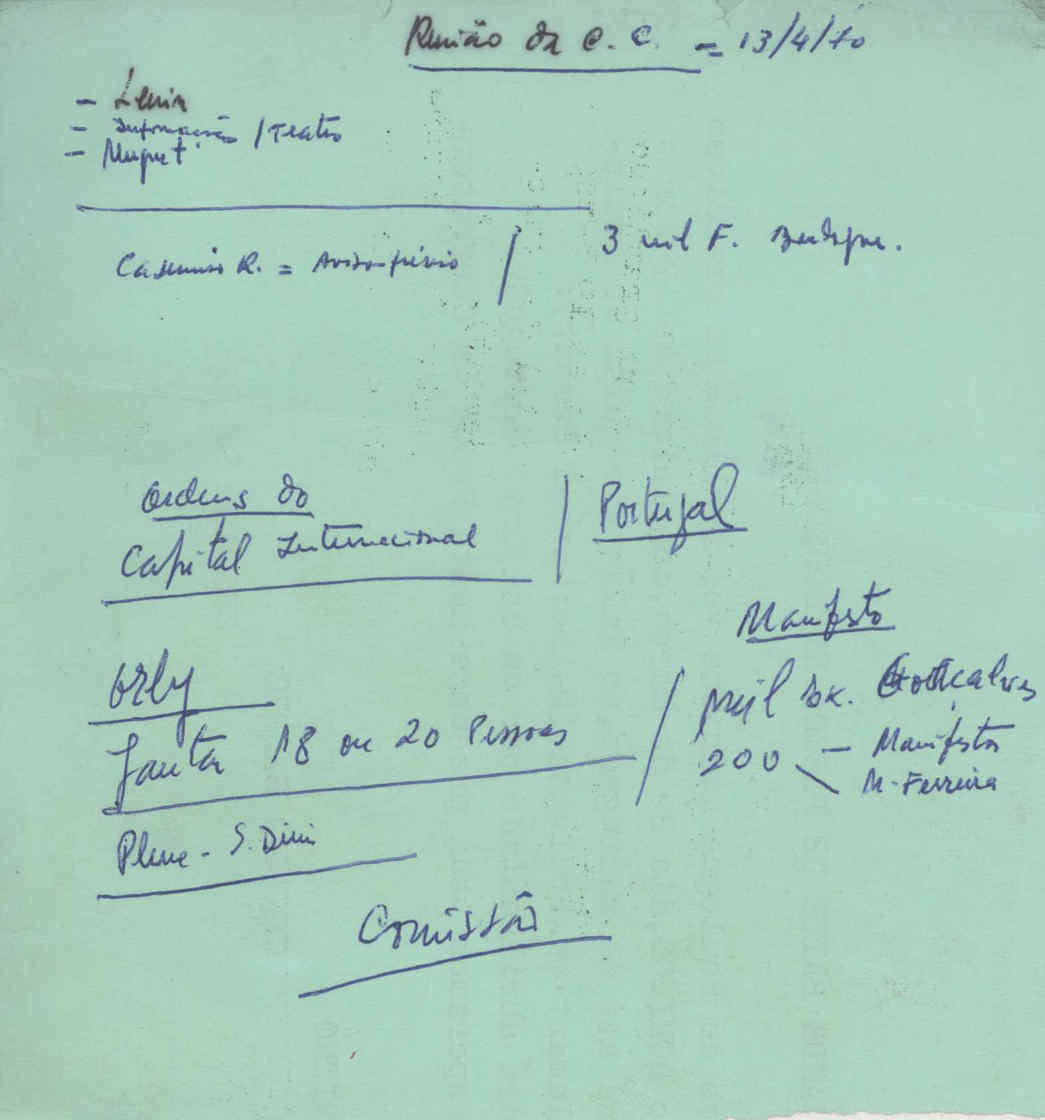 Reunião da C.C. = 13/4/70
- Lenin
- Informação / Teatro
-
Casimiro R. = Aviso-prévio / 3 mil F.
Ordens do
Capital Internacional / Portugal
Orly
Jantar 18 ou 20 Pessoas /
Manifesto
mil ex. Gonçalves
200 - Manifestos
M. Ferreira
S. Dinis
Comissão